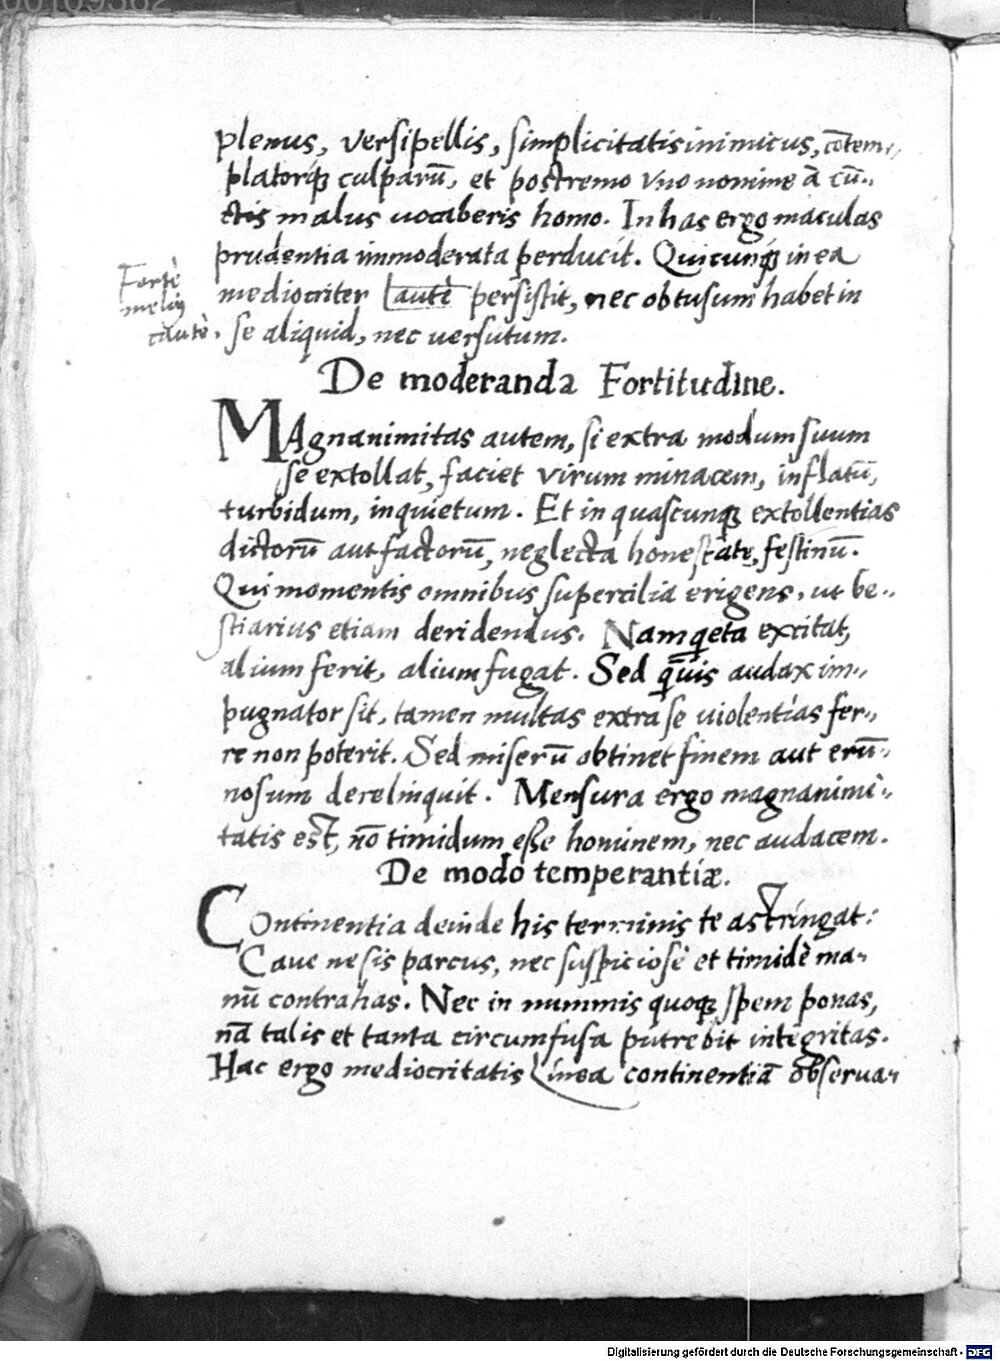 plenus, versipellis, simplicitatis inimicus, cōtem-
platorq́; culparū, et postremo vno nomine à cū-
ctis malus uocaberis homo. In has ergo maculas
prudentia immoderata perducit. Quicunq́; in ea
mediocriter lautè persistit, nec obtusum habet in
Fortè
meliꝰ
cautè.
se aliquid, nec versutum.
De moderanda Fortitudine.
MAgnanimitas autem, si extra modum suum
se extollat, faciet virum minacem, inflatū,
turbidum, inquietum. Et in quascunq; extollentias
dictorū aut factorū, neglecta honestate, festinū.
Qui momentis omnibus supercilia erigens, ut be-
stiarius etiam deridendus. Nam qeta excitat,
alium ferit, alium fugat. Sed q̄uis audax im-
pugnator sit, tamen multas extra se uiolentias fer-
re non poterit. Sed miserū obtinet finem aut erū-
nosum derelinquit. Mensura ergo magnanimi-
tatis est, nō timidum esse hominem, nec audacem.
De modo temperantiæ.
COntinentia deinde his terminis te astringat:
Caue ne sis parcus, nec suspiciosè et timidè ma-
nū contrahas. Nec in nummis quoq; spem ponas,
nā talis et tanta circumfusa putrebit integritas.
Hac ergo mediocritatis linea continentiā obserua-
Digitalisierung gefördert durch die Deutsche Forschungsgemeinschaft - DFG